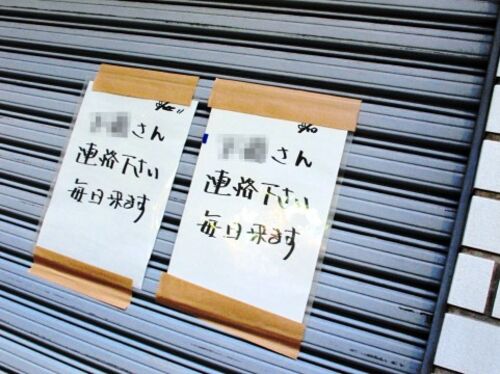 さん
連絡下さい
毎日来ます
さん
連絡下さい
毎日来ます